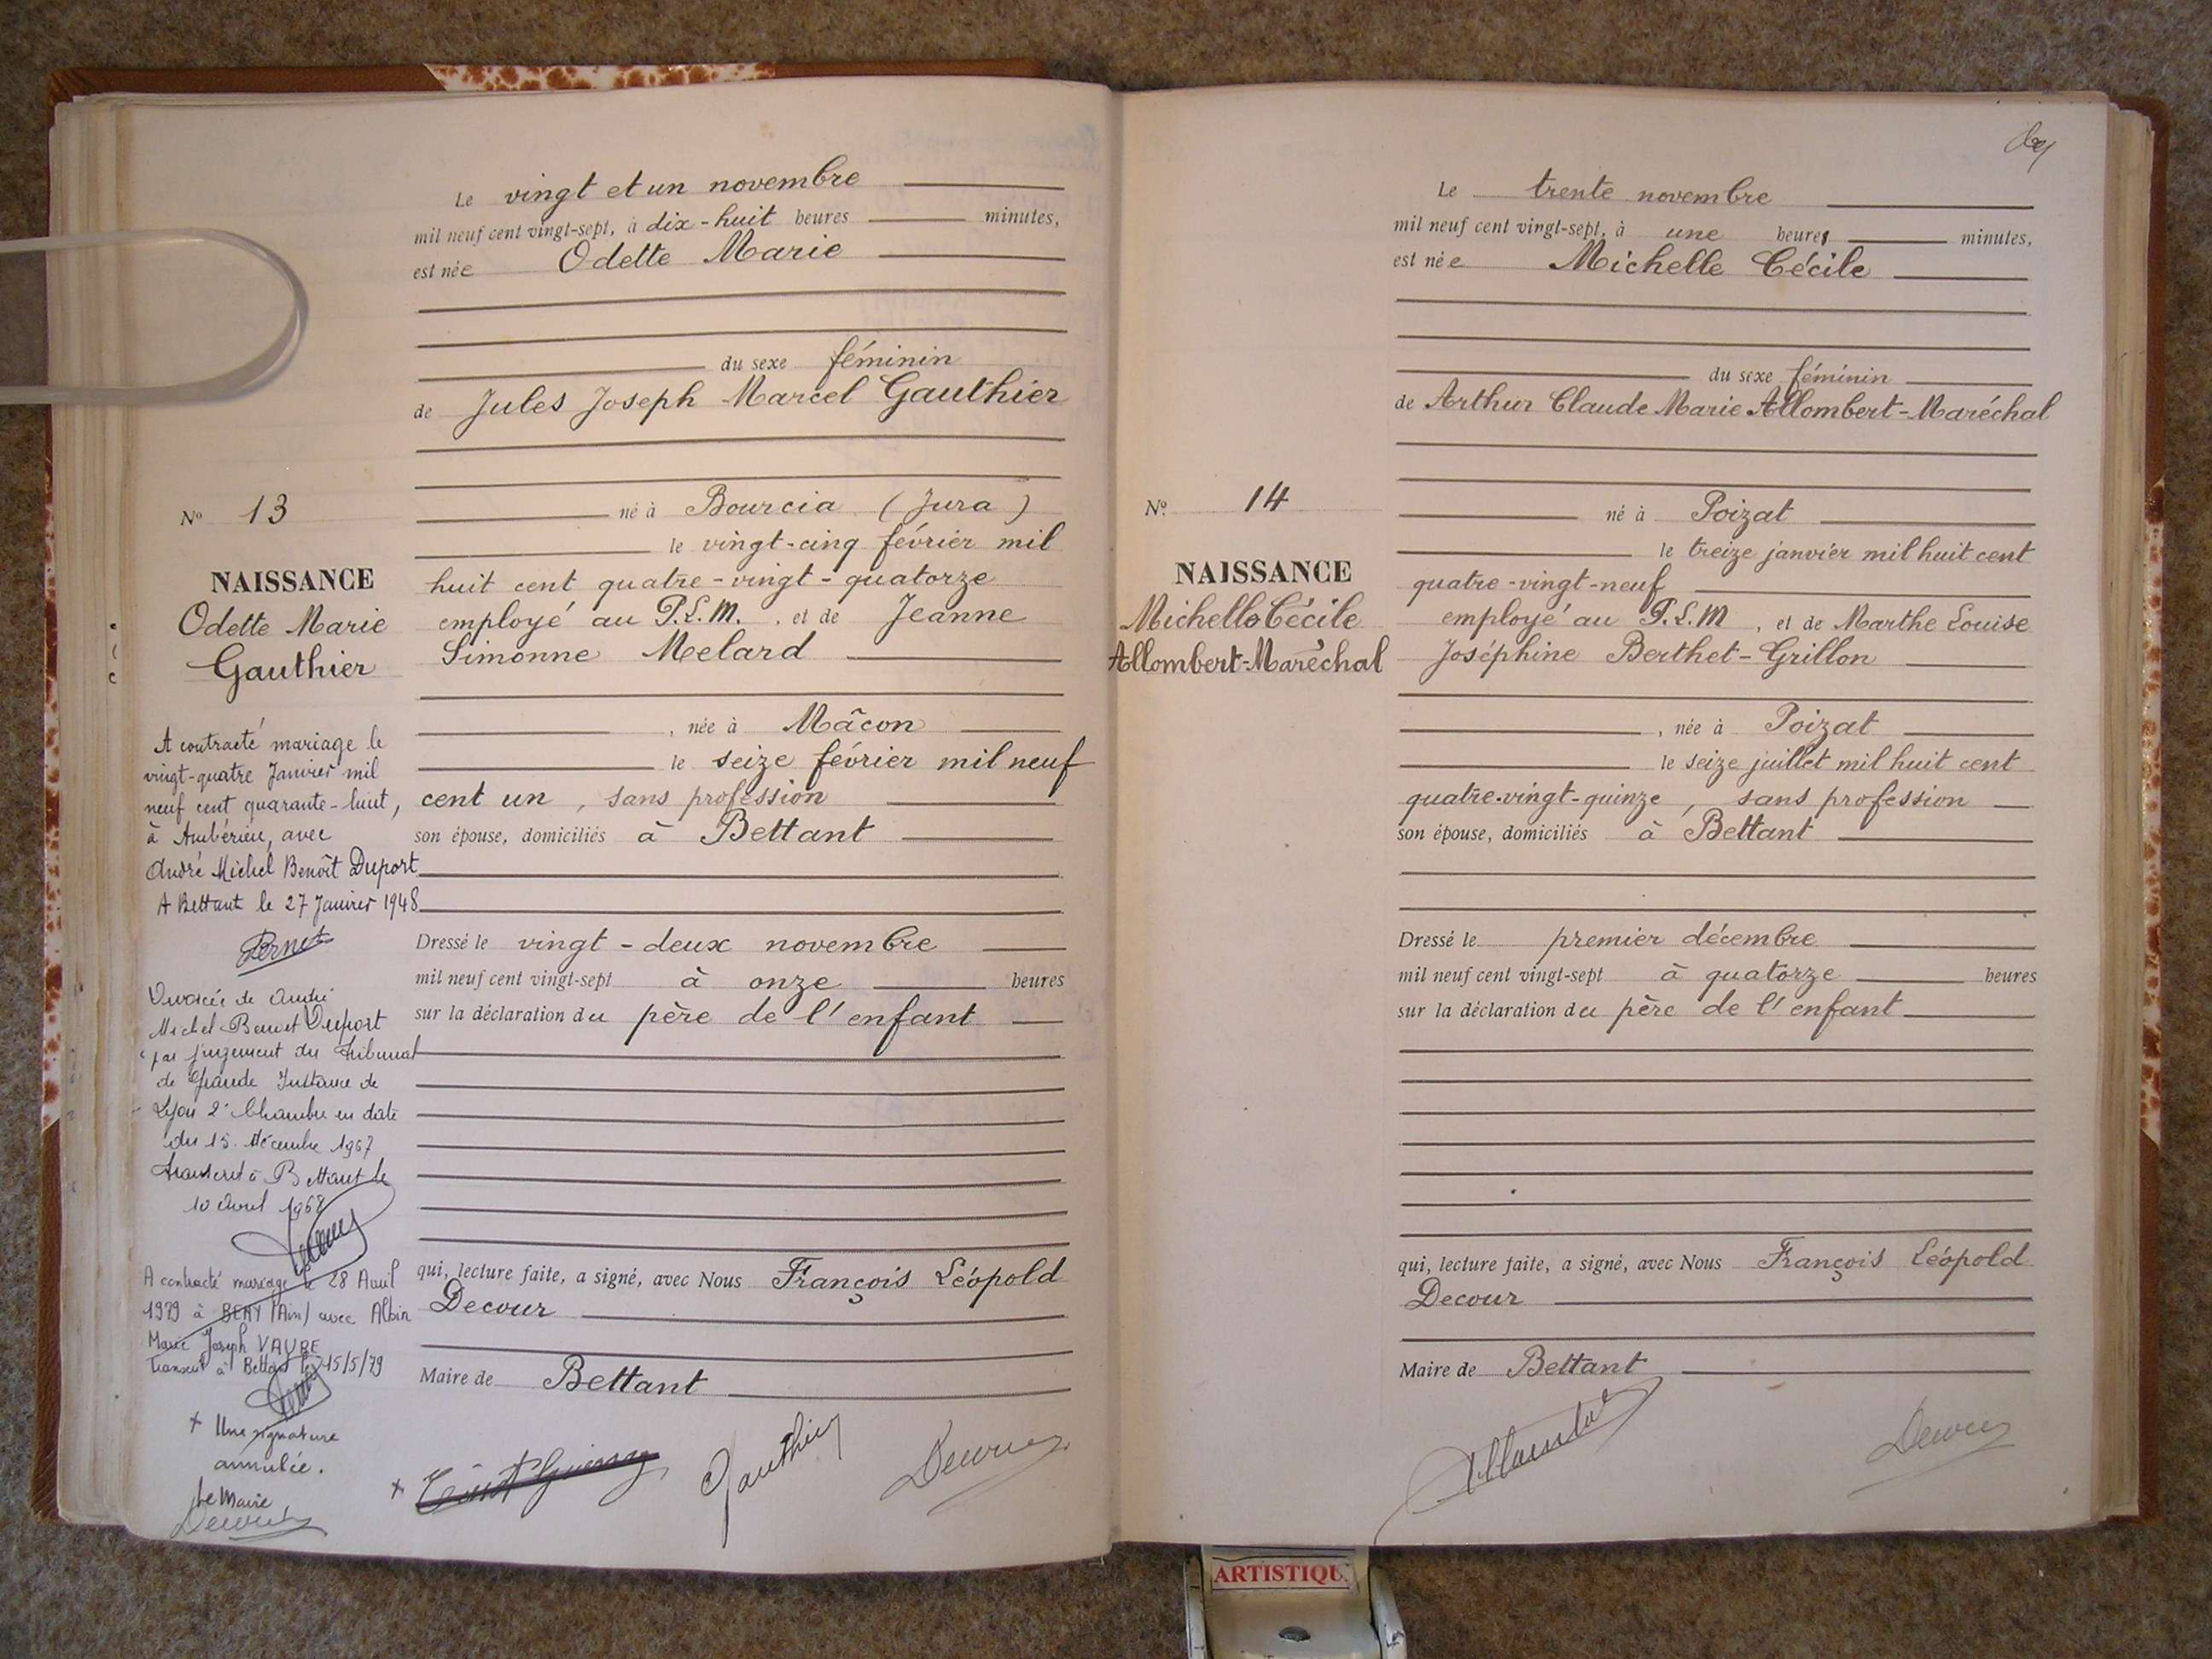 Le vingt et un novembre
mil neuf cent vingt-sept, à dix-huit heures minutes,
est née Odette Marie
du sexe féminin
de Jules Joseph Marcel Gauthier
né à Bourcia (Jura)
le vingt-cinq février mil
huit cent quatre-vingt-quatorze
employé au P.L.M. , et de Jeanne
Simonne Melard
, née à Mâcon
le seize février mil neuf
cent un, sans profession
son épouse, domiciliés à Bettant
Dressé le vingt-deux novembre
mil neuf cent vingt-sept à onze heures
sur la déclaration du père de l'enfant
qui, lecture faite, a signé, avec Nous François Léopold
Decour
Maire de Bettant
Gauthier
Decour
No 13
NAISSANCE
Odette Marie
Gauthier
A contracté mariage le
vingt-quatre Janvier mil
neuf cent quarante-huit,
à Ambérieu, avec
André Michel Benoît Duport
A Bettant le 27 Janvier 1948
Divorcée de André
Michel Benoit Duport
par jugement du Tribunal
de Grande Instance de
Lyon 2e Chambre en date
du 15 Décembre 1967
transcrit à Bettant le
10 Avril 1968
A contracté mariage le 28 Avril
1979 à (Ain) avec Albin
Marie Joseph
transcrit à Bettant le 15/5/79
+ Une signature
annulée.
Le Maire
Decour
+
Le trente novembre
mil neuf cent vingt-sept, à une heures minutes,
est née Michelle Cécile
du sexe féminin
de Arthur Claude Marie Allombert-Maréchal
né à Poizat
le treize janvier mil huit cent
quatre-vingt-neuf
employé au P.L.M , et de Marthe Louise
Joséphine Berthet-Grillon
, née à Poizat
le seize juillet mil huit cent
quatre-vingt-quinze, sans profession
son épouse, domiciliés à Bettant
Dressé le premier décembre
mil neuf cent vingt-sept à quatorze heures
sur la déclaration du père de l'enfant
qui, lecture faite, a signé, avec Nous François Léopold
Decour
Maire de Bettant
Decour
No. 14
NAISSANCE
Michelle Cécile
Allombert-Maréchal
ARTISTIQU